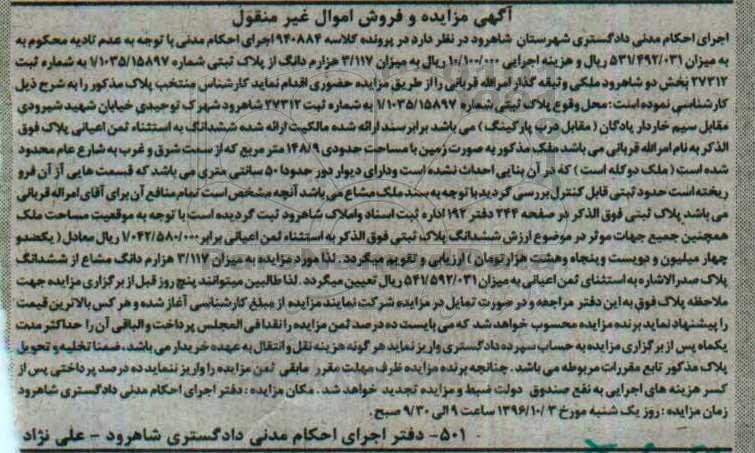 آگهی مزایده و فروش اموال غیر منقول
اجرای احکام مدنی دادگستری شهرستان شاهرود در نظر دارد در پرونده کلاسه ۹۴۰۸۸۴ اجرای احکام مدنی با توجه به عدم تادیه محکوم به
به میزان ۵۳۱/۴۹۲/۰۳۱ ریال و هزینه اجرایی ۱۰/۱۰۰/۰۰۰ ریال به میزان ۳/۱۱۷ هزارم دانگ از پلاک ثبتی شماره ۱/۱۰۳۵/۱۵۸۹۷ به شماره ثبت
۲۷۳۱۲ بخش دو شاهرود ملکی وثیقه گذار امراله قربانی را از طریق مزایده حضوری اقدام نماید کارشناس منتخب پلاک مذکور را به شرح ذیل
کارشناسی نموده است : محل وقوع پلاک ثبتی شماره ۱/۱۰۳۵/۱۵۸۹۷ به شماره ثبت ۲۷۳۱۲ شاهرود شهرک توحیدی خیابان شهید شیرودی
مقابل سیم خاردار پادگان ( مقابل درب پارکینگ ) می باشد برابر سند ارائه شده مالکیت ارائه شده ششدانگ به استثناء ثمن اعیانی پلاک فوق
الذکر به نام امراله قربانی می باشد ملک مذکور به صورت زمین با مساحت حدودی ۱۴۸/۹ متر مربع که از سمت شرق و غرب به شارع عام محدود
شده است ( ملک دو کله است ) که در آن بنایی احداث نشده است و دارای دیوار دور حدودا ۵۰ سانتی متری می باشد که قسمت هایی از آن فرو
ریخته است حدود ثبتی قابل کنترل بررسی گردید با توجه به سند ملک مشاع می باشد آنچه مشخص است تمام منافع آن برای آقای امراله قربانی
می باشد پلاک ثبتی فوق الذکر در صفحه ۲۴۴ دفتر ۱۹۲ اداره ثبت اسناد واملاک شاهرود ثبت گردیده است با توجه به موقعیت مساحت ملک
همچنین جمیع جهات موثر در موضوع ارزش ششدانگ پلاک ثبتی فوق الذکر به استثناء ثمن اعیانی برابر ۱/۰۴۲/۵۸۰/۰۰۰ ریال معادل ( یکصدو
چهار میلیون و دویست و پنجاه وهشت هزار تومان ) ارزیابی و تقویم میگردد . لذا مورد مزایده به میزان ۳/۱۱۷ هزارم دانگ مشاع از ششدانگ
پلاک صدرالاشاره به استثنای ثمن اعیانی به میزان ۵۴۱/۵۹۲/۰۳۱ ریال تعیین میگردد . لذا طالبین میتوانند پنج روز قبل از برگزاری مزایده جهت
ملاحظه پلاک فوق به این دفتر مراجعه و در صورت تمایل در مزایده شرکت نمایند مزایده از مبلغ کارشناسی آغاز شده و هر کس بالاترین قیمت
را پیشنهاد نماید برنده مزایده محسوب خواهد شد که می بایست ده درصد ثمن مزایده را نقدا فی المجلس پرداخت و الباقی آن را حداکثر مدت
یکماه پس از برگزاری مزایده به حساب سپرده دادگستری واریز نماید هر گونه هزینه نقل و انتقال به عهده خریدار می باشد ، ضمنا تخلیه و تحویل
پلاک مذکور تابع مقررات مربوطه می باشد . چنانچه برنده مزایده ظرف مهلت مقرر مابقی ثمن مزایده را واریز ننماید ده درصد پرداختی پس از
کسر هزینه های اجرایی به نفع صندوق دولت ضبط و مزایده تجدید خواهد شد . مکان مزایده : دفتر اجرای احکام مدنی دادگستری شاهرود
زمان مزایده : روز یک شنبه مورخ ۱۳۹۶/۱۰/۳ ساعت ۹ الی ۹/۳۰ صبح .
۵۰۱- دفتر اجرای احکام مدنی دادگستری شاهرود - علی نژاد